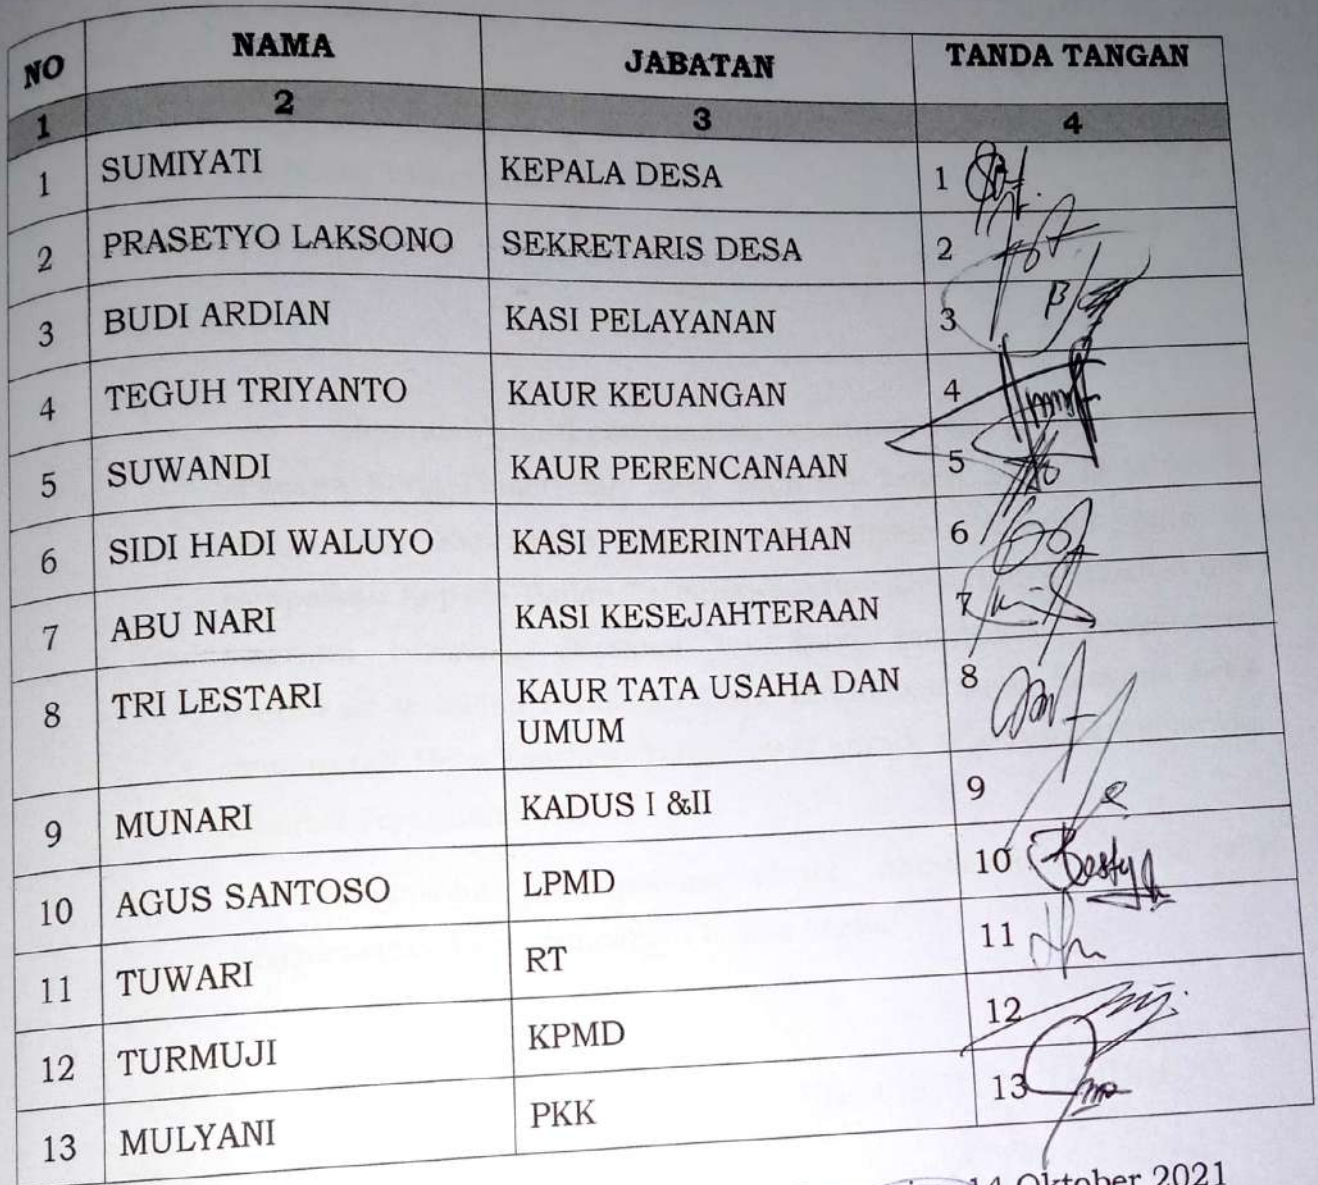 NO NAMA JABATAN TANDA TANGAN
1 2 3 4
1 SUMIYATI KEPALA DESA 1
2 PRASETYO LAKSONO SEKRETARIS DESA 2
3 BUDI ARDIAN KASI PELAYANAN 3
4 TEGUH TRIYANTO KAUR KEUANGAN 4
5 SUWANDI KAUR PERENCANAAN 5
6 SIDI HADI WALUYO KASI PEMERINTAHAN 6
7 ABU NARI KASI KESEJAHTERAAN 7
8 TRI LESTARI KAUR TATA USAHA DAN 8
UMUM
9 MUNARI KADUS I &II 9
10 AGUS SANTOSO LPMD 10
11 TUWARI RT 11
12 TURMUJI KPMD 12
13 MULYANI PKK 13
14 Oktober 2021